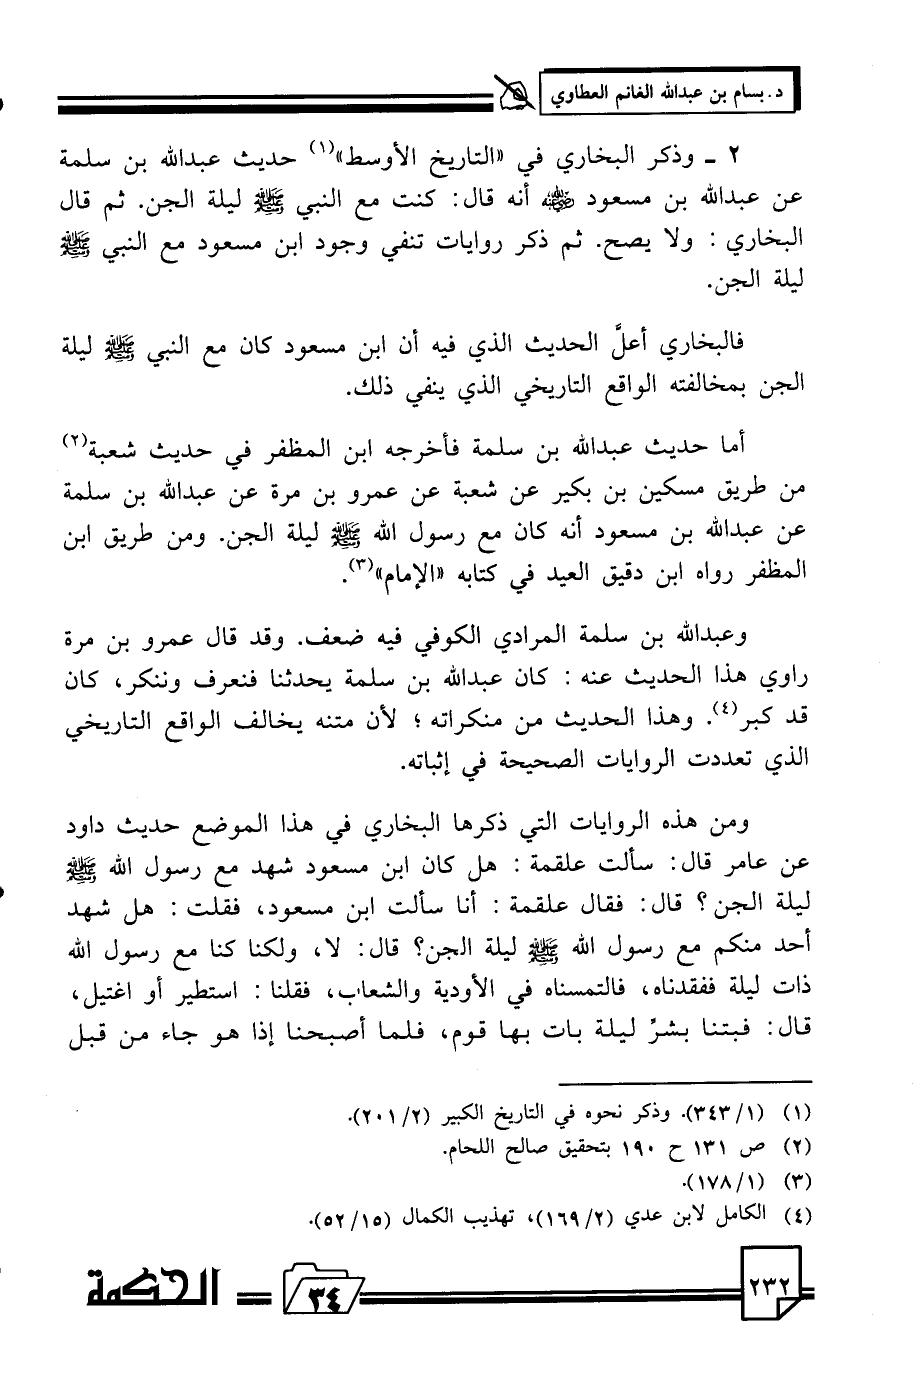 د. بسام بن عبدالله الغانم العطاوي
٢ ـ وذكر البخاري في «التاريخ الأوسط»(١) حديث عبدالله بن سلمة
عن عبدالله بن مسعود رضي الله عنه أنه قال: كنت مع النبي ﷺ ليلة الجن. ثم قال
البخاري : ولا يصح. ثم ذكر روايات تنفي وجود ابن مسعود مع النبي ﷺ
ليلة الجن.
فالبخاري أعلَّ الحديث الذي فيه أن ابن مسعود كان مع النبي ﷺ ليلة
الجن بمخالفته الواقع التاريخي الذي ينفي ذلك.
أما حديث عبدالله بن سلمة فأخرجه ابن المظفر في حديث شعبة(٢)
من طريق مسكين بن بكير عن شعبة عن عمرو بن مرة عن عبدالله بن سلمة
عن عبدالله بن مسعود أنه كان مع رسول الله ﷺ ليلة الجن. ومن طريق ابن
المظفر رواه ابن دقيق العيد في كتابه «الإمام»(٣).
وعبدالله بن سلمة المرادي الكوفي فيه ضعف. وقد قال عمرو بن مرة
راوي هذا الحديث عنه : كان عبدالله بن سلمة يحدثنا فنعرف وننكر، كان
قد كبر(٤). وهذا الحديث من منكراته ؛ لأن متنه يخالف الواقع التاريخي
الذي تعددت الروايات الصحيحة في إثباته.
ومن هذه الروايات التي ذكرها البخاري في هذا الموضع حديث داود
عن عامر قال: سألت علقمة : هل كان ابن مسعود شهد مع رسول الله ﷺ
ليلة الجن؟ قال: فقال علقمة : أنا سألت ابن مسعود، فقلت : هل شهد
أحد منكم مع رسول الله ﷺ ليلة الجن؟ قال: لا، ولكنا كنا مع رسول الله
ذات ليلة ففقدناه، فالتمسناه في الأودية والشعاب، فقلنا : استطير أو اغتيل،
قال: فبتنا بشرِّ ليلة بات بها قوم، فلما أصبحنا إذا هو جاء من قبل
(١) (٣٤٣/١). وذكر نحوه في التاريخ الكبير (٢٠١/٢).
(٢) ص ١٣١ ح ١٩٠ بتحقيق صالح اللحام.
(٣) (١٧٨/١).
(٤) الكامل لابن عدي (١٦٩/٢)، تهذيب الكمال (٥٢/١٥).
٢٣٢
٣٤
الحكمة